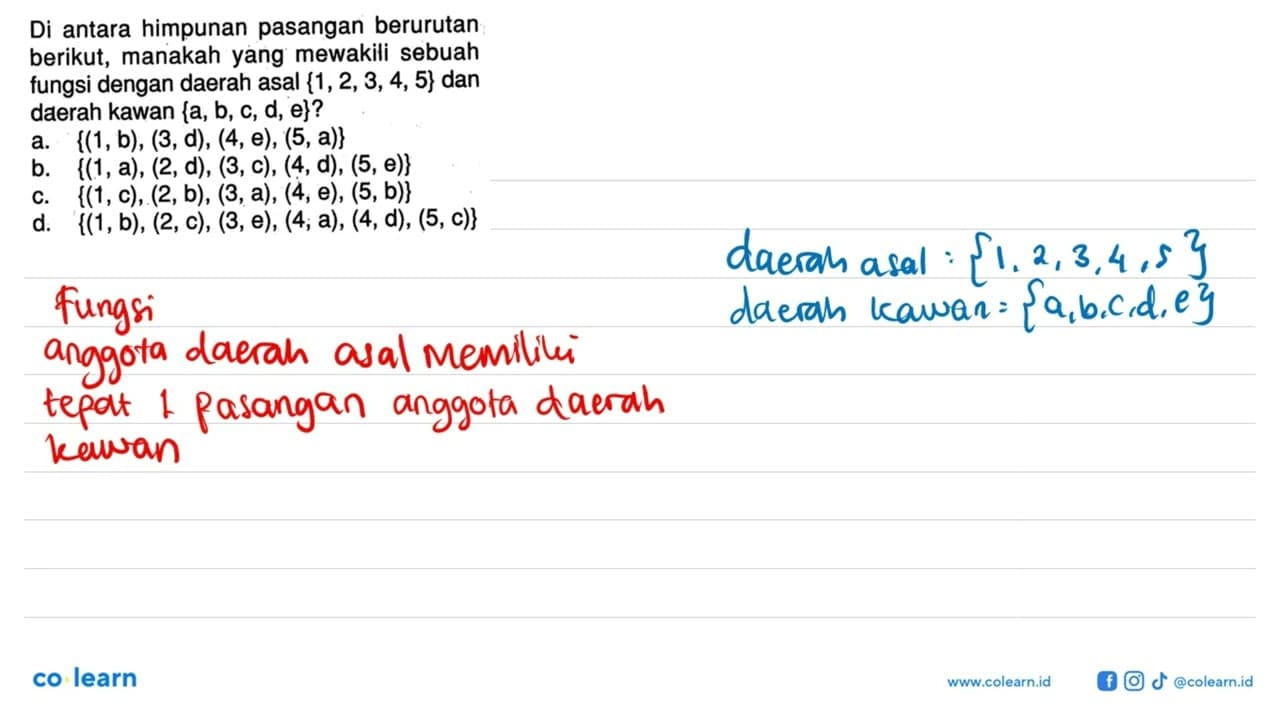 Di antara himpunan pasangan berurutan
berikut, manakah yang mewakili sebuah
fungsi dengan daerah asal {1, 2, 3, 4, 5} dan
daerah kawan {a, b, c, d, e}?
a. {(1, b), (3, d), (4, e), (5, a)}
b. {(1, a), (2, d), (3, c), (4, d), (5, e)}
c. {(1, c), (2, b), (3, a), (4, e), (5, b)}
d. {(1, b), (2, c), (3, e), (4, a), (4, d), (5, c)}
daerah asal : {1, 2, 3, 4, 5}
daerah kawan = {a, b, c, d, e}
Fungsi
anggota daerah asal memiliki
tepat 1 pasangan anggota daerah
kawan
co learn
www.colearn.id
@colearn.id